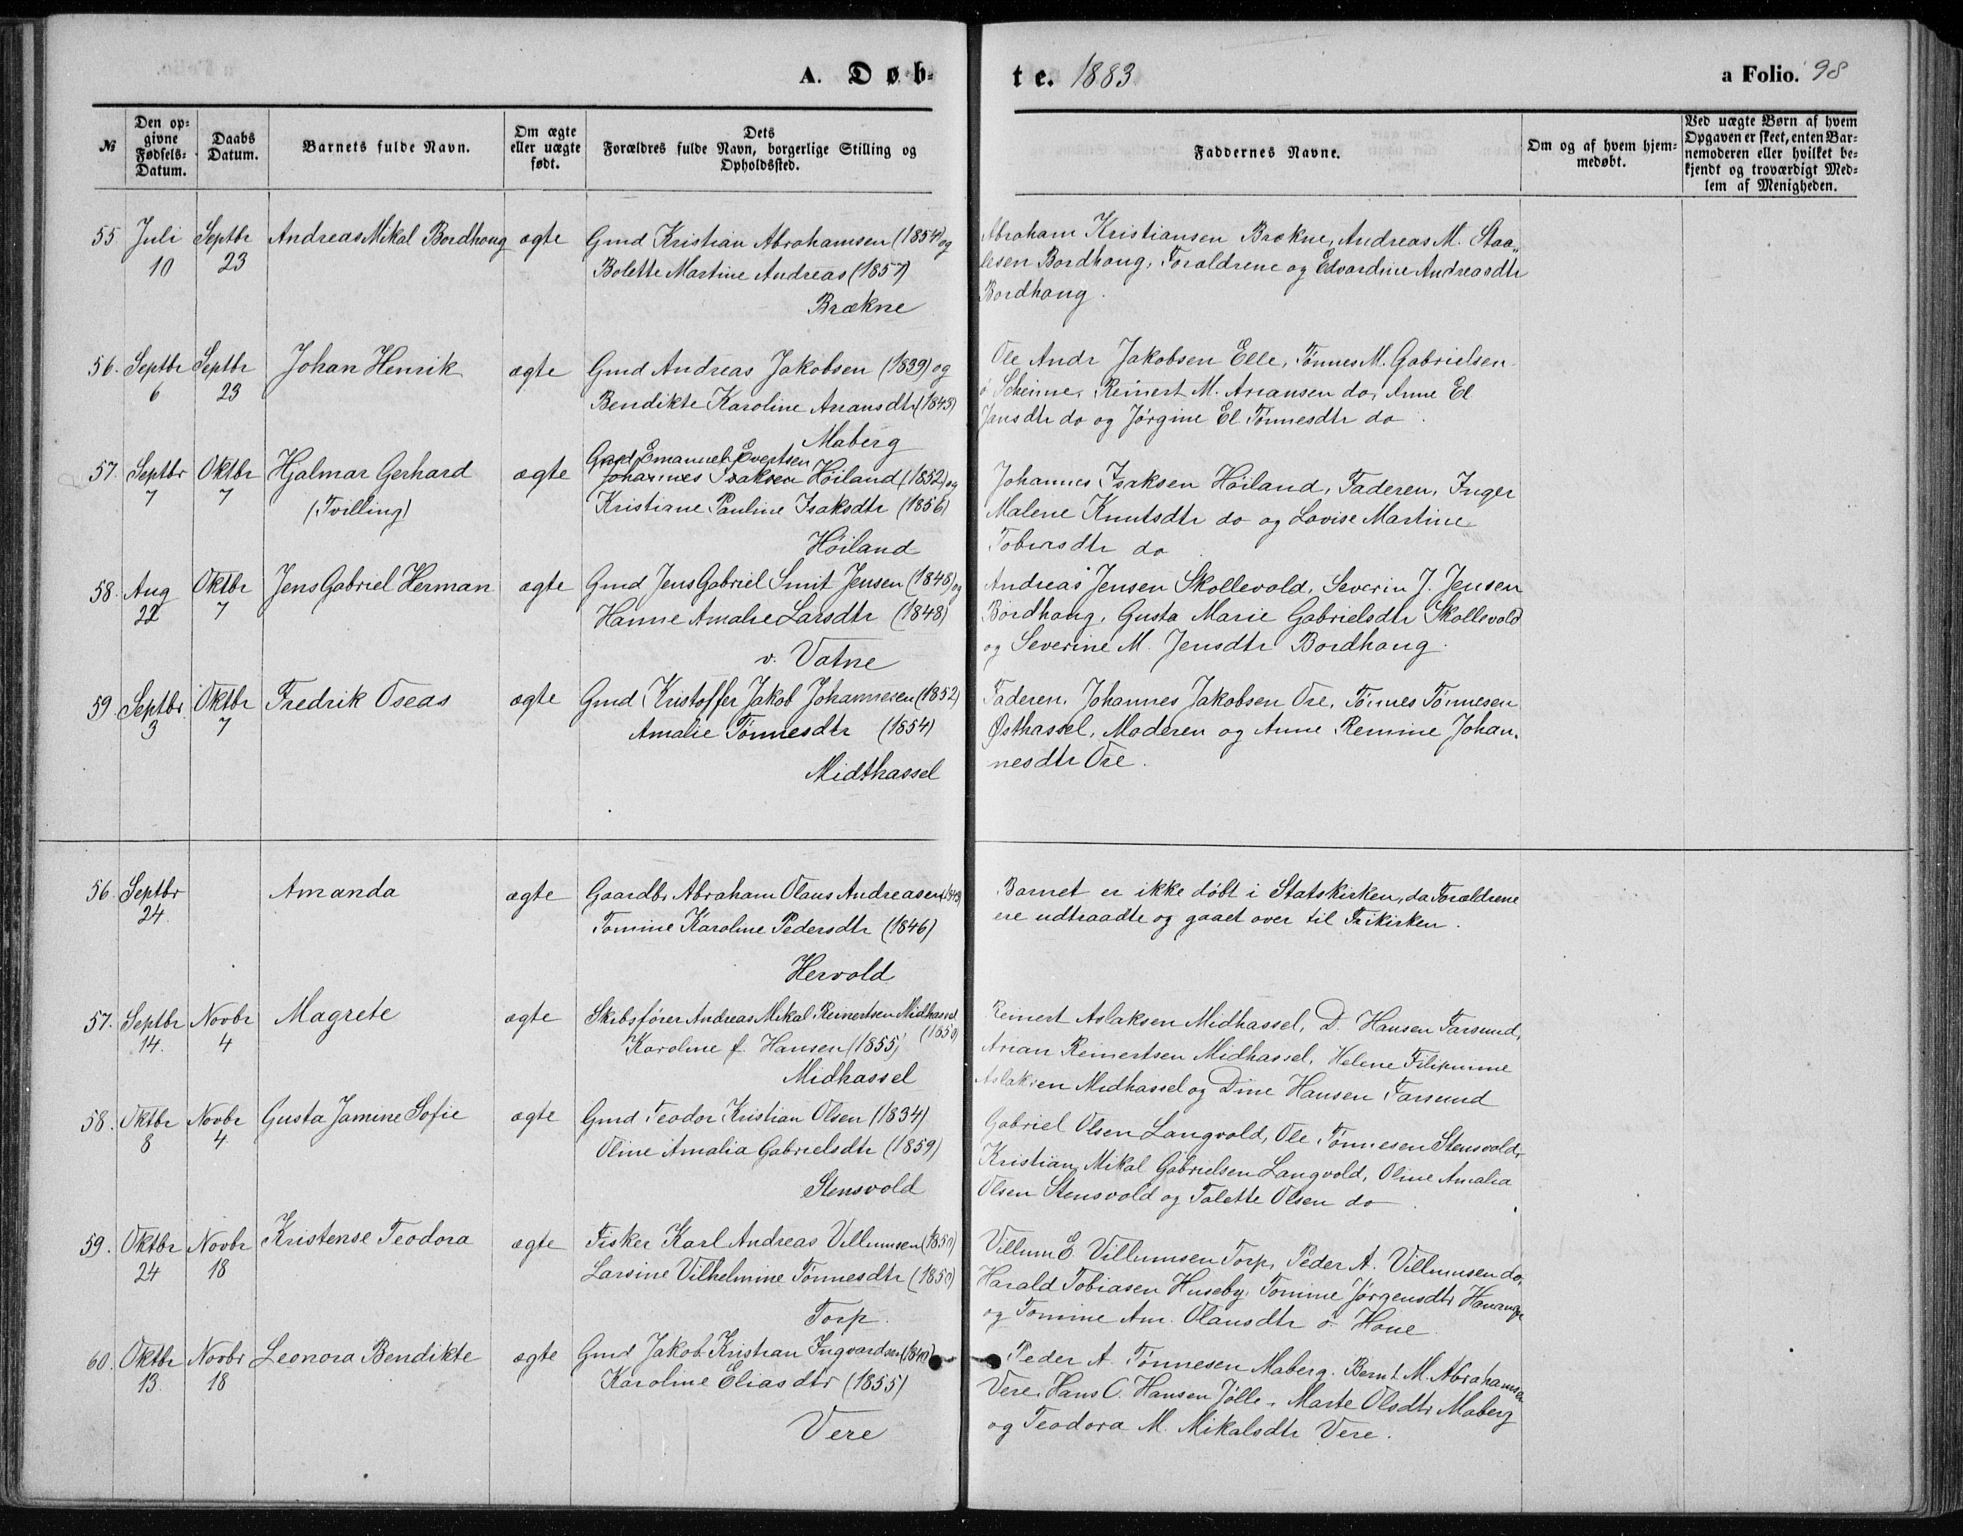 A. Døb-
te. 1883
a Folio. 98
№
Den opgivne Fødsels-Datum.
Daabs Datum.
Barnets fulde Navn.
Om ægte eller uægte født.
Dets Forældres fulde Navn, borgerlige Stilling og Opholdssted.
Faddernes Navne.
Om og af hvem hjemmedøbt.
Ved uægte Børn af hvem Opgaven er skeet, enten Barnemoderen eller hvilket bekjendt og troværdigt Medlem af Menigheden.
55 Juli 10 Septbr 23 Andreas Mikal Bordhaug ægte Gmd Kristian Abrahamsen (1854) og
Bolette Martine Andreas (1857)
Brækne
Abraham Kristiansen Brækne, Andreas M. Staa-
lesen Bordhaug, Forældrene og Edvardine Andreasdtr
Bordhaug.
56. Septbr 6 Septbr 23 Johan Henrik ægte Gmd Andreas Jakobsen (1839) og
Bendikte Karoline Ariansdtr (1845)
Maberg
Ole Andr Jakobsen Elle, Tønnes M. Gabrielsen
ø Skeime, Reinert M. Ariansen do, Anne El
Jansdtr do og Jørgine El Tønnesdtr do.
57. Septbr 7 Oktbr 7 Hjalmar Gerhard ægte Gmd Emanuel Evertsen
(Tvilling) Johannes Isaksen Høiland (1852) og
Kristiane Pauline Isaksdtr (1856)
Høiland
Johannes Isaksen Høiland, Faderen, Inger
Malene Knutsdtr do og Lovise Martine
Tobiasdtr do
58. Aug 22 Oktbr 7 Jens Gabriel Herman ægte Gmd Jens Gabriel Smit Jensen (1848) og
Hanne Amalie Larsdtr (1848)
v. Vatne
Andreas Jensen Skollevold, Severin J. Jensen
Bordhaug, Gusta Marie Gabrielsdtr Skollevold
og Severine M. Jensdtr Bordhaug.
59 Septbr 3 Oktbr 7 Fredrik Oseas ægte Gmd Kristoffer Jakob Johannesen (1852)
Amalie Tønnesdtr (1854)
Midthassel
Faderen, Johannes Jakobsen Ore, Tønnes Tønnesen
Østhassel, Moderen og Anne Remine Johan-
nesdtr Ore.
56. Septbr 24 Amanda ægte Gaardbr Abraham Olaus Andreasen
Tomine Karoline Pedersdtr (1846)
Hervold
Barnet er ikke døbt i Statskirken, da Forældrene
ere udtraadte og gaaet over til Frikirken.
57. Septbr 14. Novbr 4 Magrete ægte Skibsfører Andreas Mikal Reinertsen Midhassel
(1850)
Karoline f. Hansen (1855)
Midhassel
Reinert Aslaksen Midhassel, D. Hansen Farsund,
Arian Reinertsen Midhassel, Helene Filipmine
Aslaksen Midhassel og Dine Hansen Farsund
58. Oktbr 8 Novbr 4 Gusta Jamine Sofie ægte Gmd Teodor Kristian Olsen (1834)
Oline Amalia Gabrielsdtr (1859)
Stensvold
Gabriel Olsen Langvold, Ole Tønnesen Stensvold,
Kristian Mikal Gabrielsen Langvold, Oline Amalia
Olsen Stensvold og Talette Olsen do
59. Oktbr 24 Novbr 18 Kristense Teodora ægte Fisker Karl Andreas Villumsen (1850)
Larsine Vilhelmine Tønnesdtr (1850)
Torp.
Villum E. Villumsen Torp, Peder A. Villumsen do,
Harald Tobiasen Huseby, Tomine Jørgensdtr
og Tomine Am. Olausdtr ø. Haue
60. Oktbr 13. Novbr 18 Leonora Bendikte ægte Gmd Jakob Kristian Ingvardsen (1840)
Karoline Eliasdtr (1855)
Vere
Peder A. Tønnesen Maberg. Bernt M. Abrahamsen
Vere, Hans C. Hansen Jølle, Marte Olsdtr Maberg
og Teodora M. Mikalsdtr Vere.